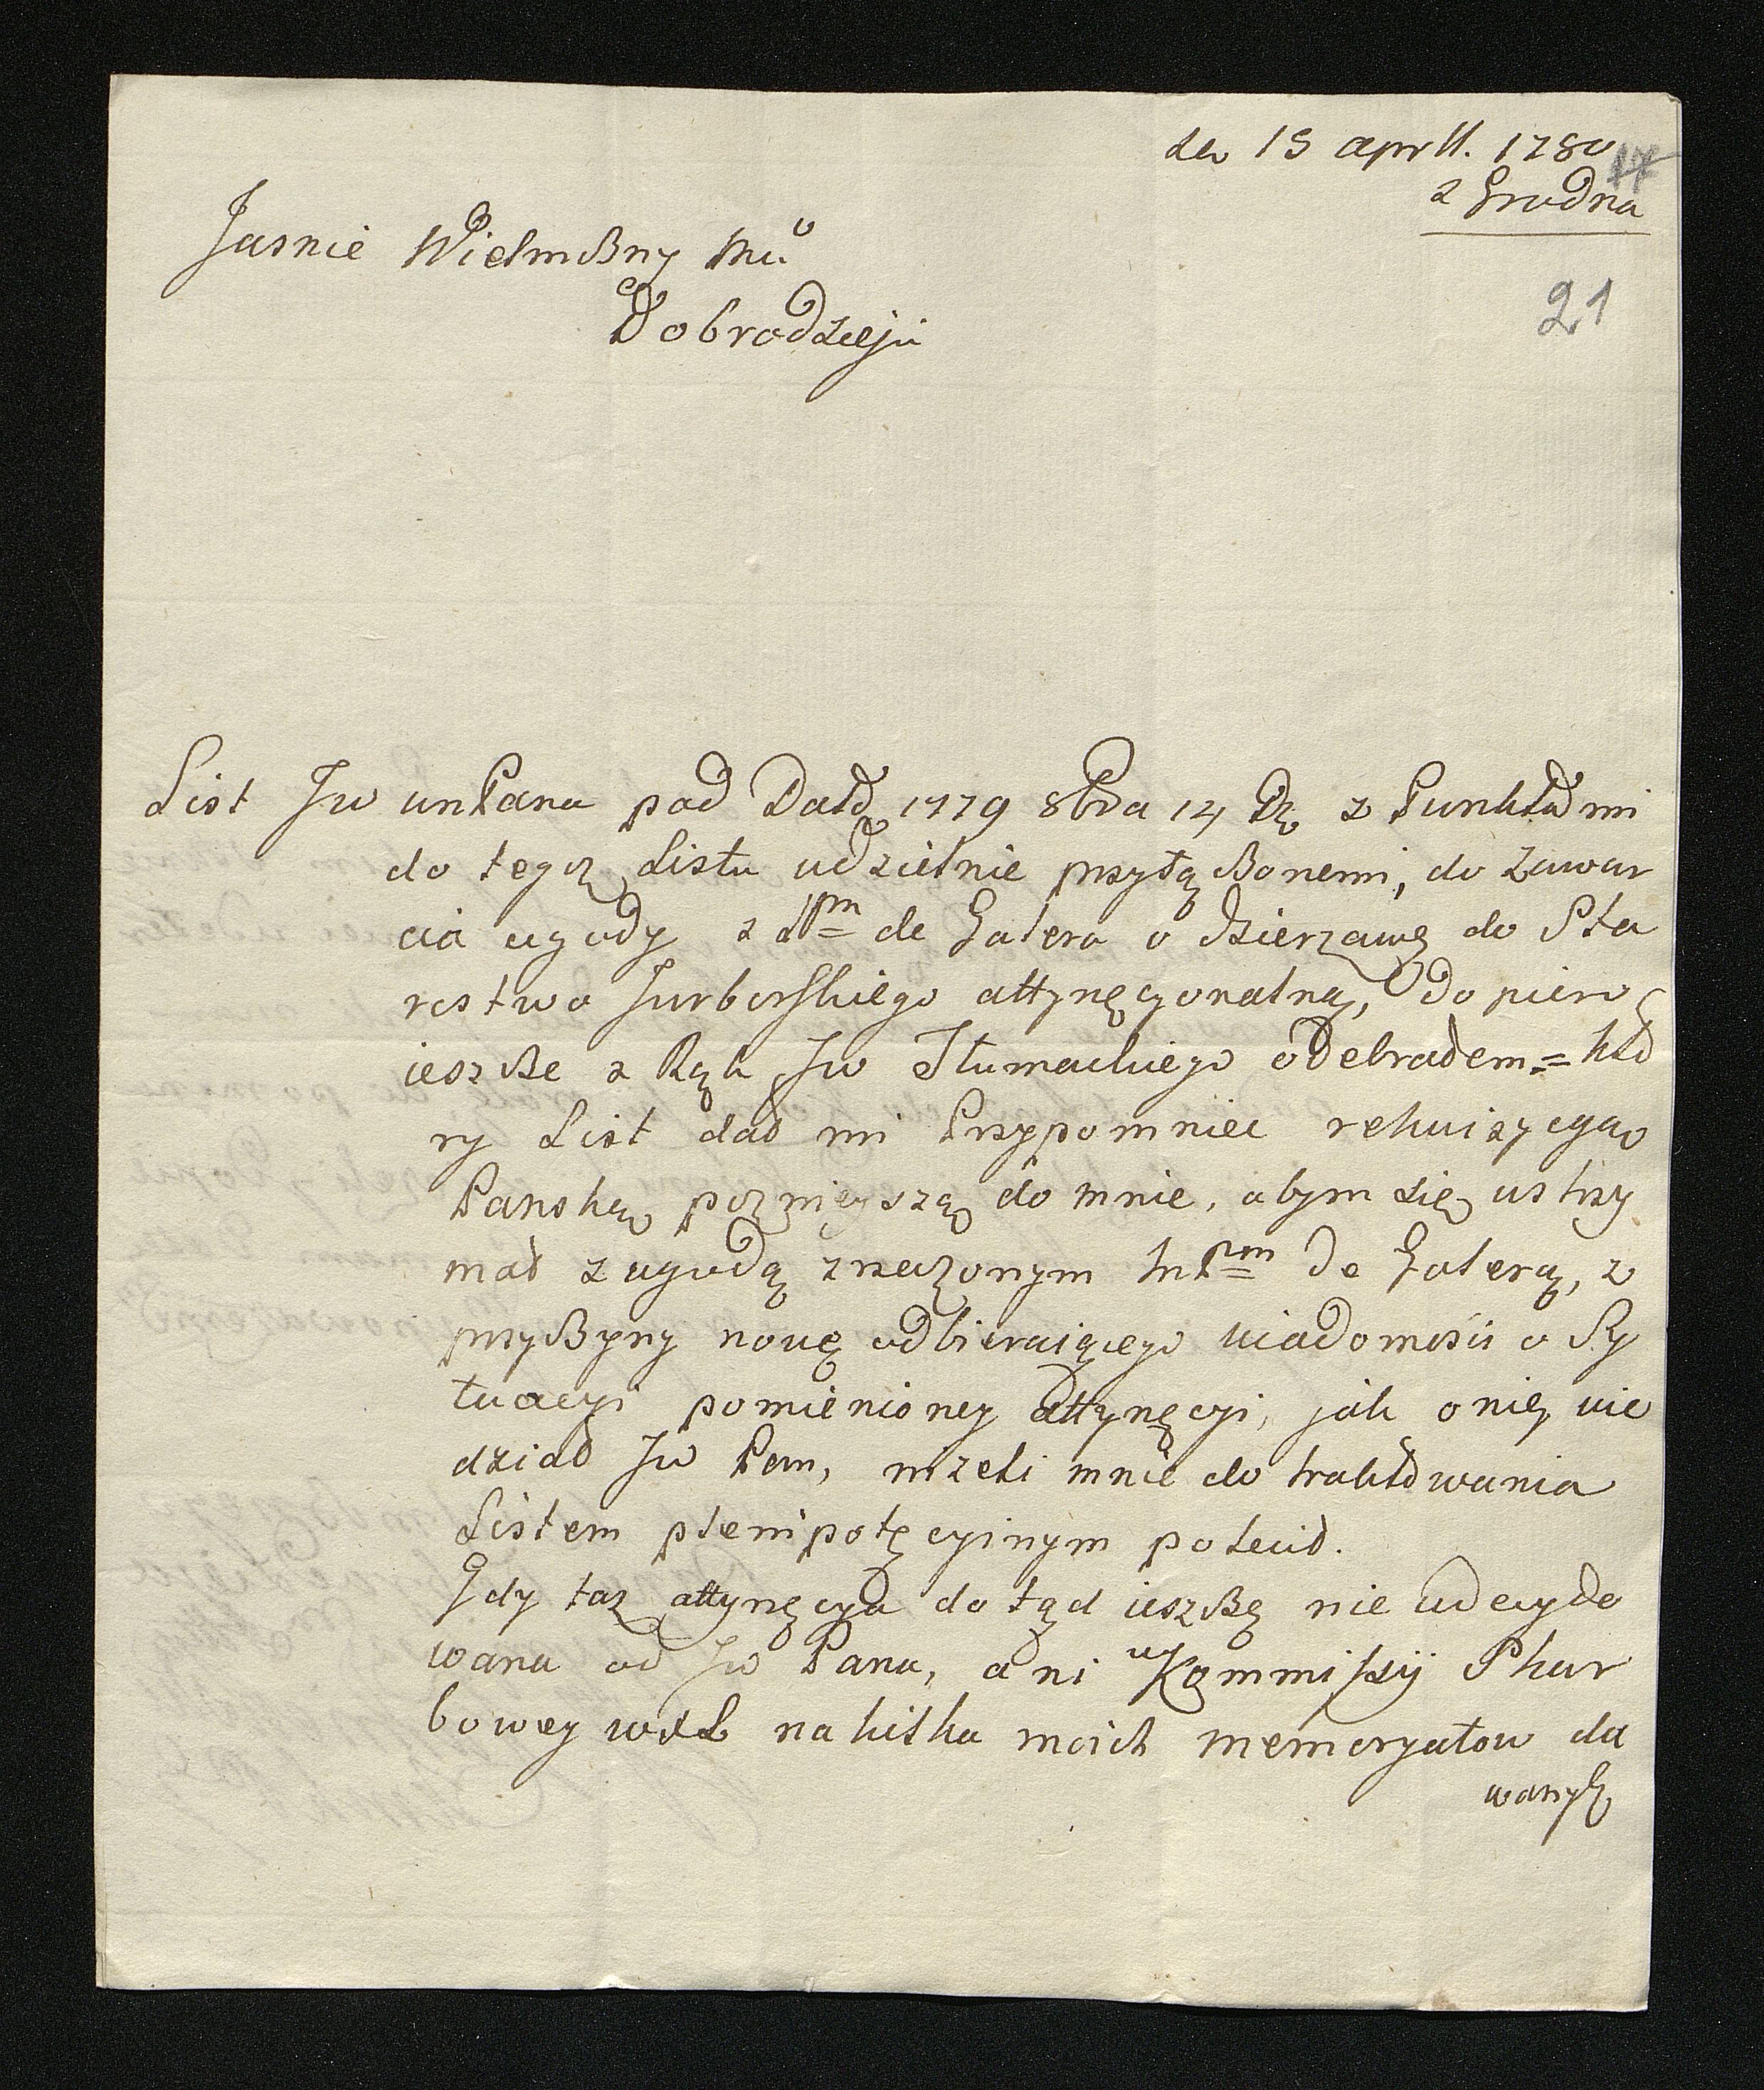 de 15 aprll. 1780
17
z Grodna
21
Jasnie Wielmożny Mci
Dobrodzieju
List Jw wmPana pod Datą 1779 8bra 14 D. z Punktami
do tegoż Listu udzielnie przyłączonemi, do zawar
cia ugody z JPm de Gatero o dzierzawę do Sta
rostwa Jurborskiego attynęcyonalną, do piero
ieszcze z Rąk Jw Tłumackiego odebrałem = któ
ry List dał mi Przypomniec rekwizycyą
Panską poznieyszą do mnie, abym się ustrzy
mał z ugodą z rzeczonym JmPm de Gaterą, z
przyczyny nowe odbieraiącego wiadomości o Sy
tuacyi pomienioney attynęcyi, jak o niey wie
dział Jw Pan, nizeli mnie do traktowania
Listem plenipotęcyinym polecił.
Gdy taż attynęcya do tąd ieszcze nie udecydo
wana od Jw Pana, ani w Kommissyi Skar
bowey wxL na kilka moich memoryałow da
wanych